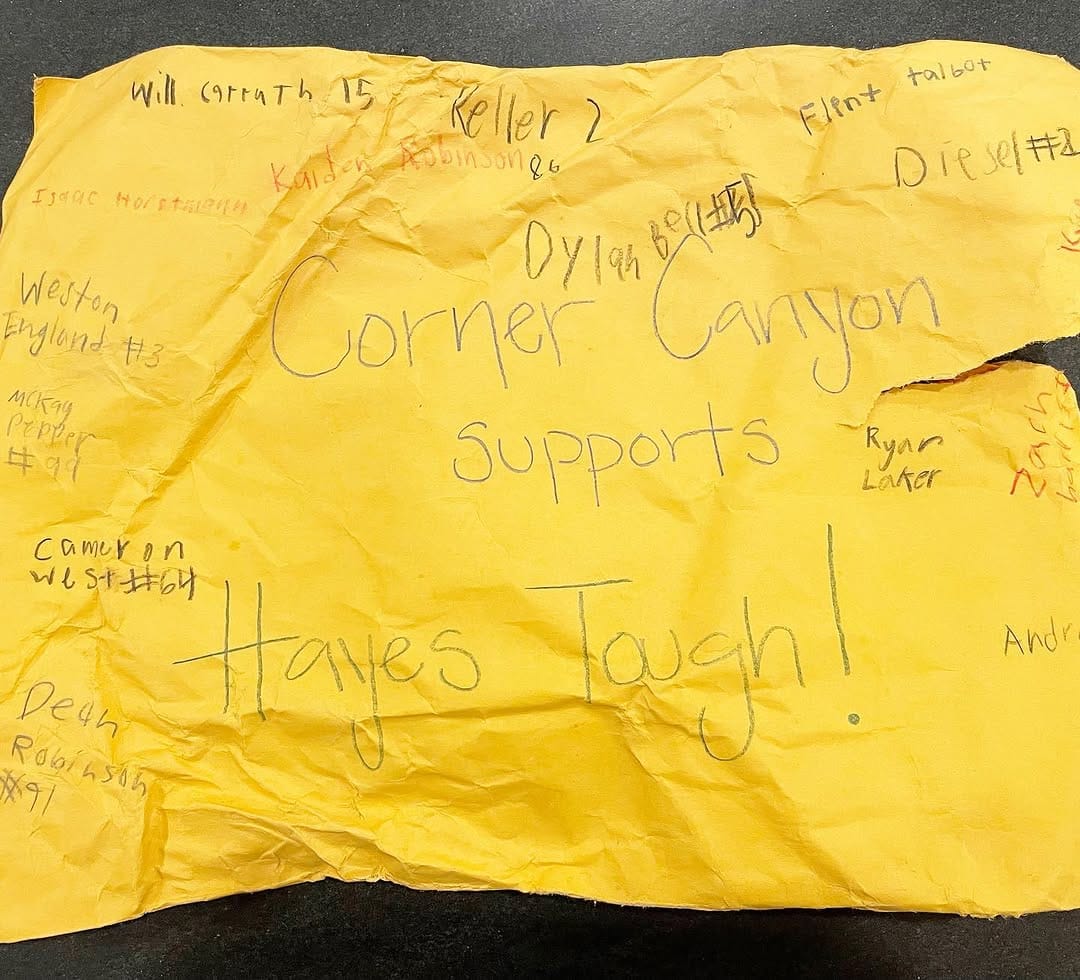 Will Carruth 15
Keller 2
Flint talbot
Kaiden Robinson 86
Diesel #2
Isaac Horstmann
Dylan Bell #51
Weston
England #3
Corner Canyon
McKay
Pepper
#99
supports
Ryan
Laker
Zach
Cameron
West #64
Hayes Tough!
Andr
Dean
Robinson
#91